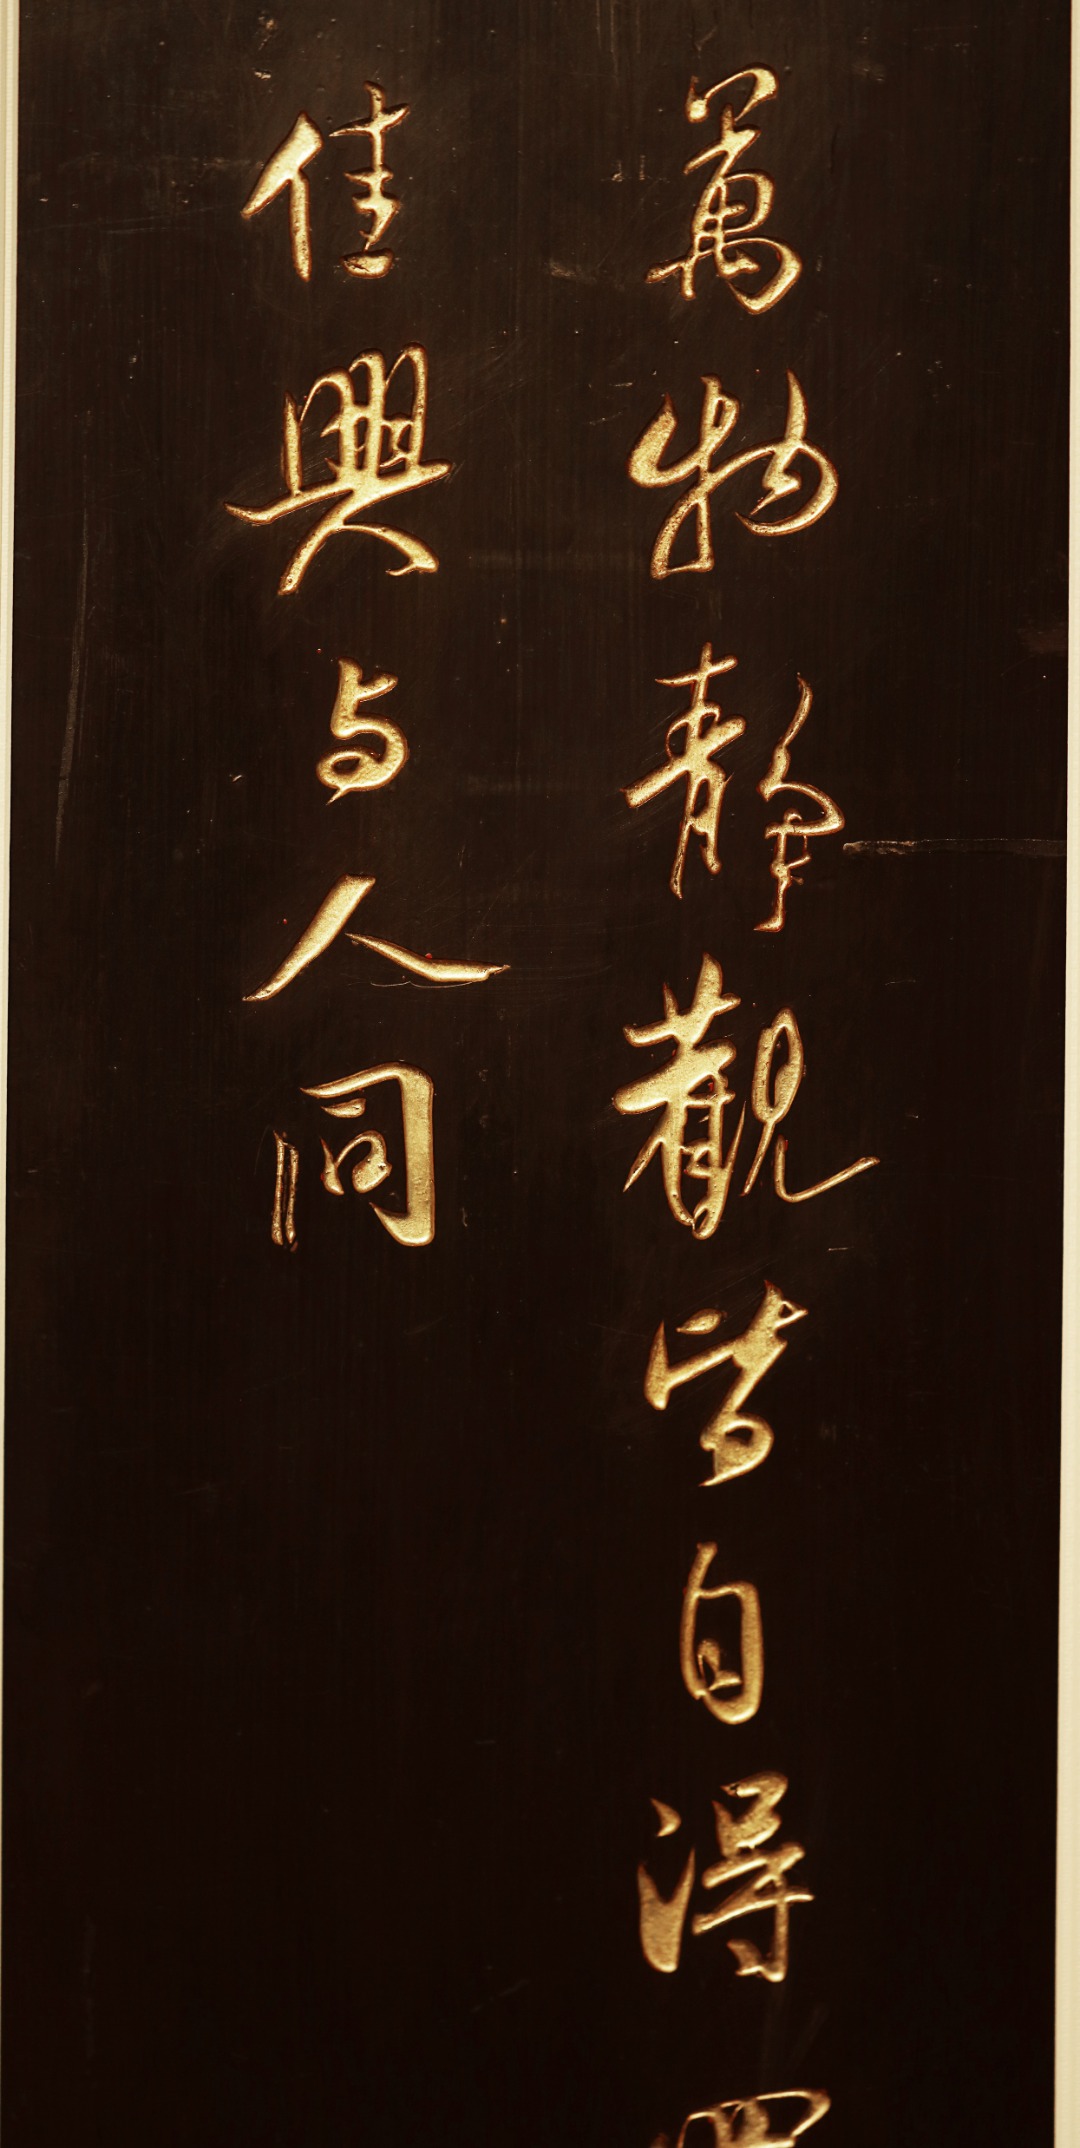 萬物静觀皆自得
佳興与人同